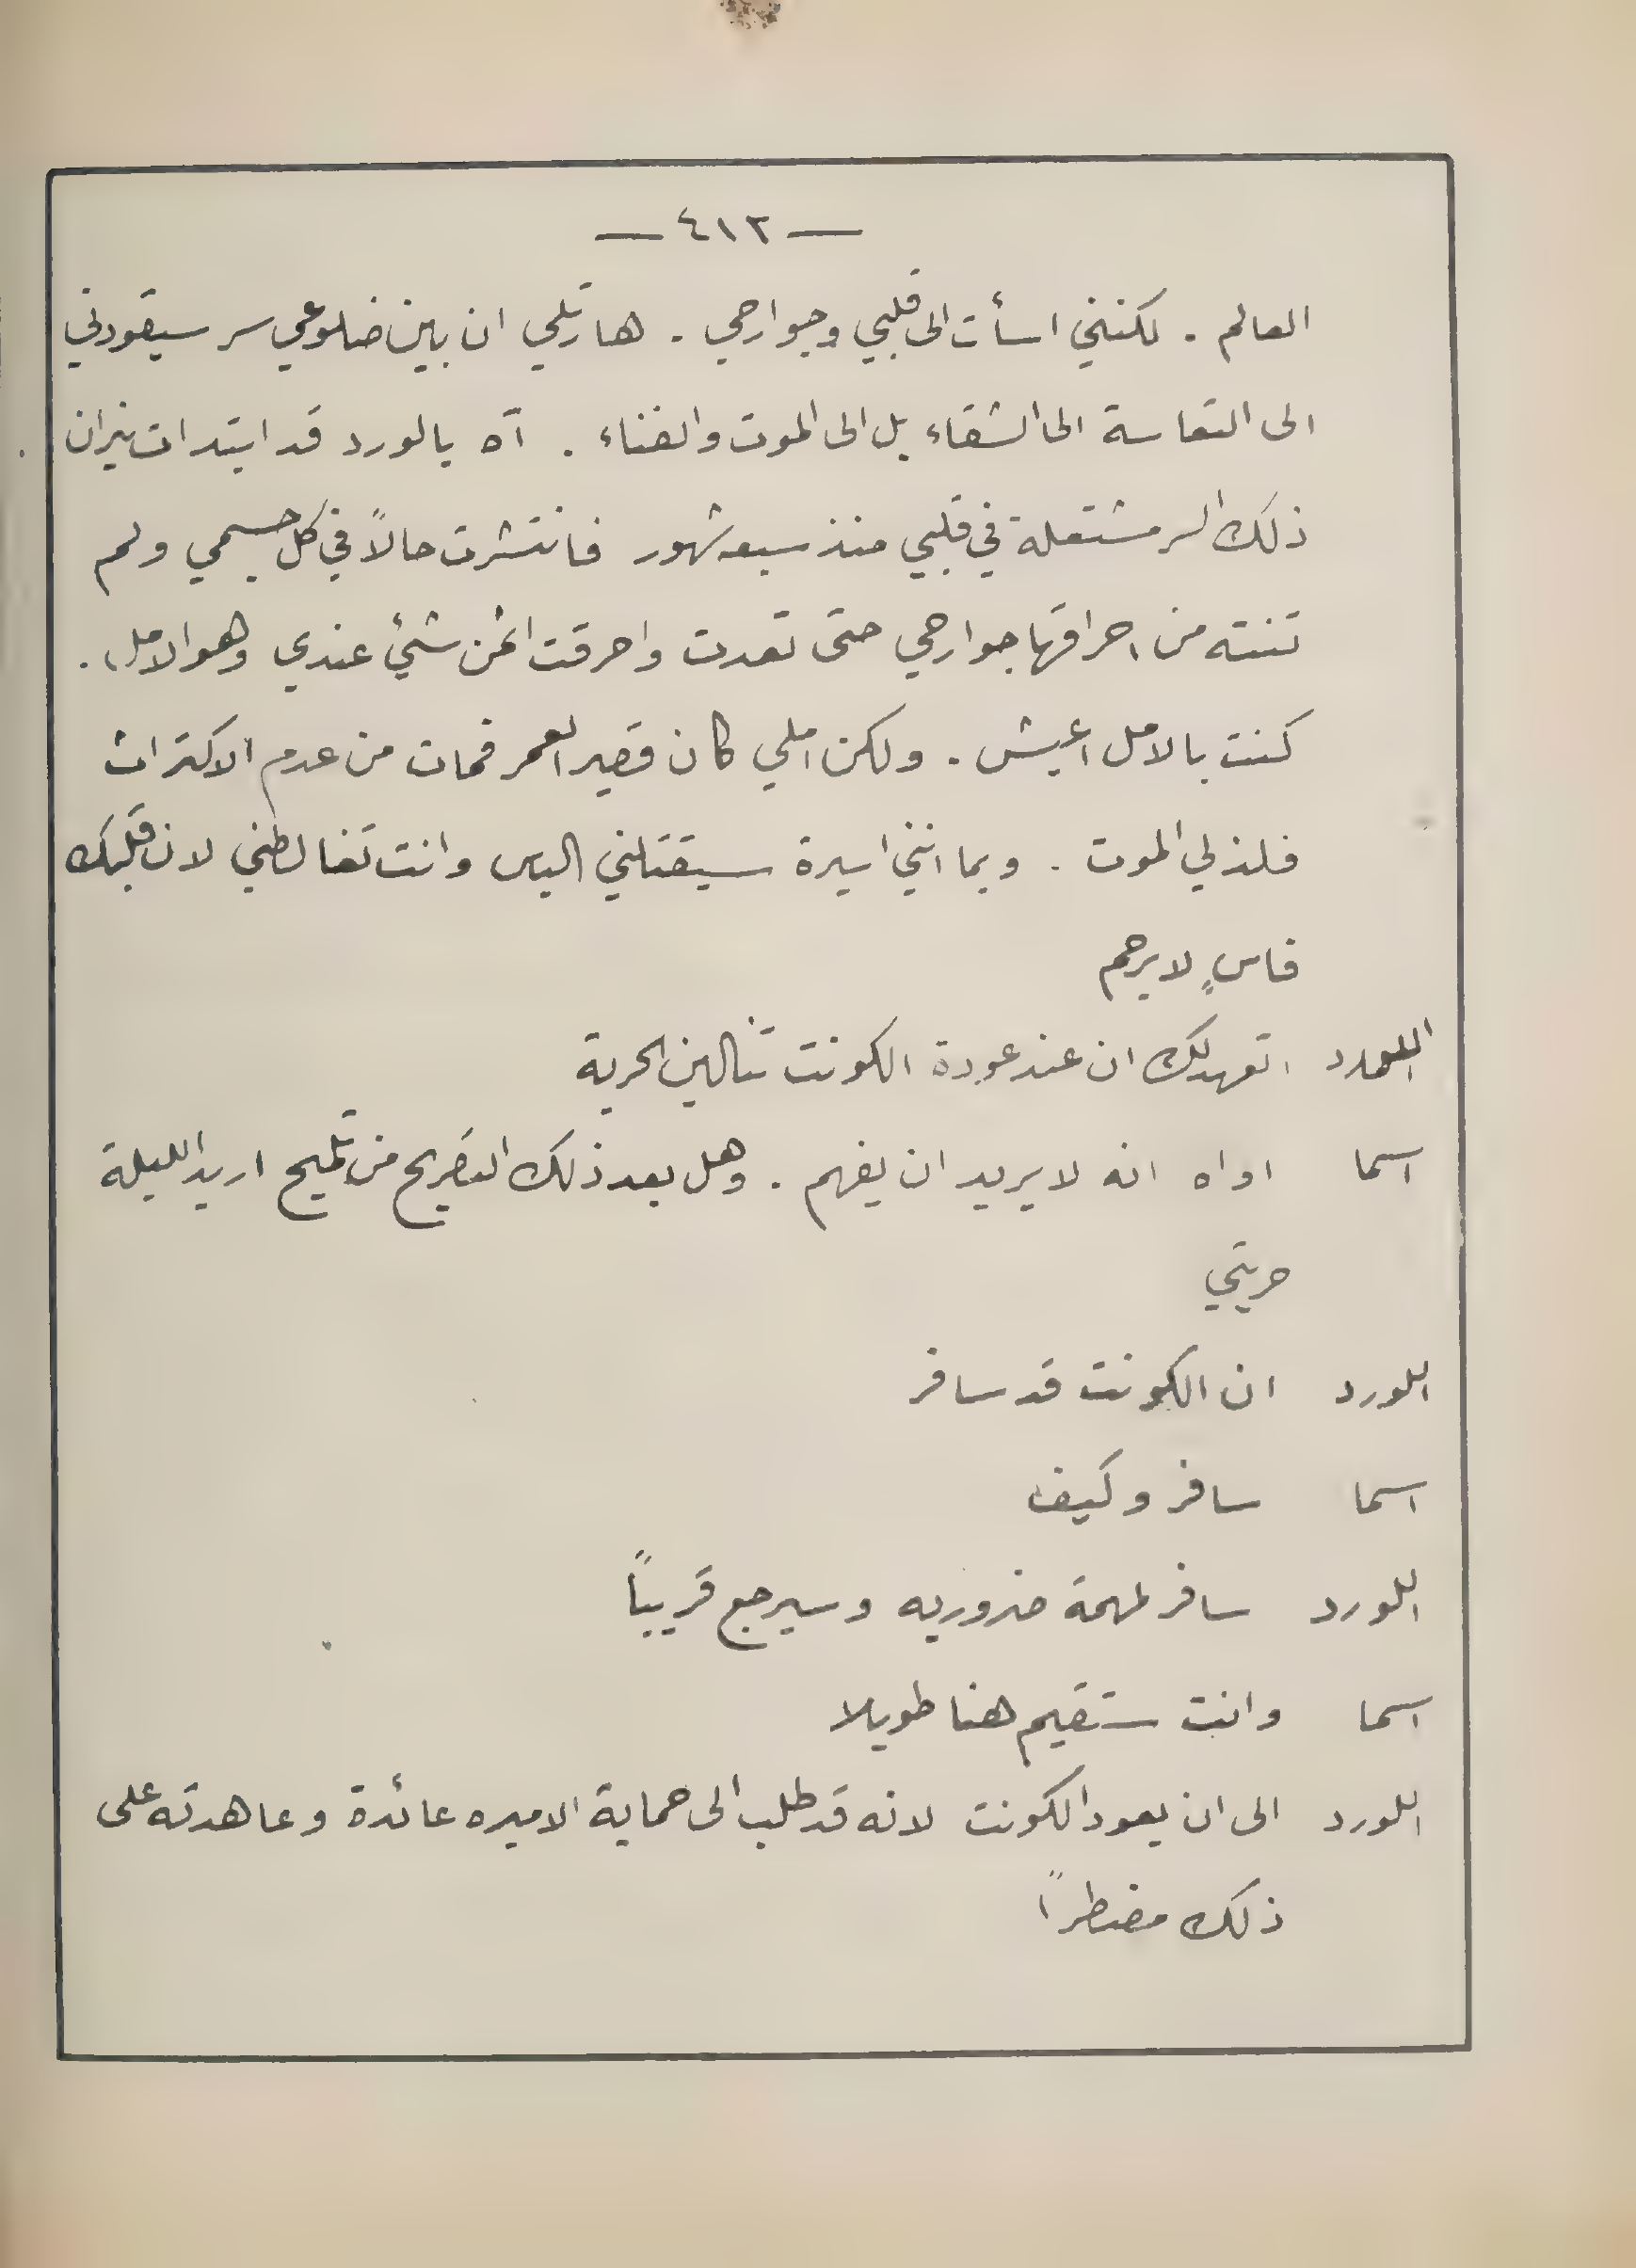 — ٤١٢ —
العالم . لكنني اسأت الى قلبي وجوارحي . هارتلي ان بين ضلوعي سر سيقودني
الى التعاسة الى الشقاء بل الى الموت والفناء . آه يالورد قد ابتدات نيران
ذلك السر مشتعلة في قلبي منذ سبعه شهور فانتشرت حالاً في كل جسمي ولم
تنته من احراقها جوارحي حتى تعدت واحرقت اثمن شئ عندي وهو الامل .
كنت بالامل اعيش . ولكن املي كان قصير العمر فمات من عدم الاكتراث
فلذلي الموت . وبما انني اسيرة سيقتلني الياس وانت تغالطني لان قلبك
قاسٍ لا يرحم
اللورد اتعهد لك ان عند عودة الكونت تنالين الحرية
اسما اواه انه لا يريد ان يفهم . وهل بعد ذلك التصريح من تلميح اريد الليلة
حريتي
اللورد ان الكونت قد سافر
اسما سافر وكيف
اللورد سافر لمهمة ضروريه وسيرجع قريباً
اسما وانت ستقيم هنا طويلا
اللورد الى ان يعود الكونت لانه قد طلب الى حماية الاميره عائدة وعاهدته على
ذلك مضطراً